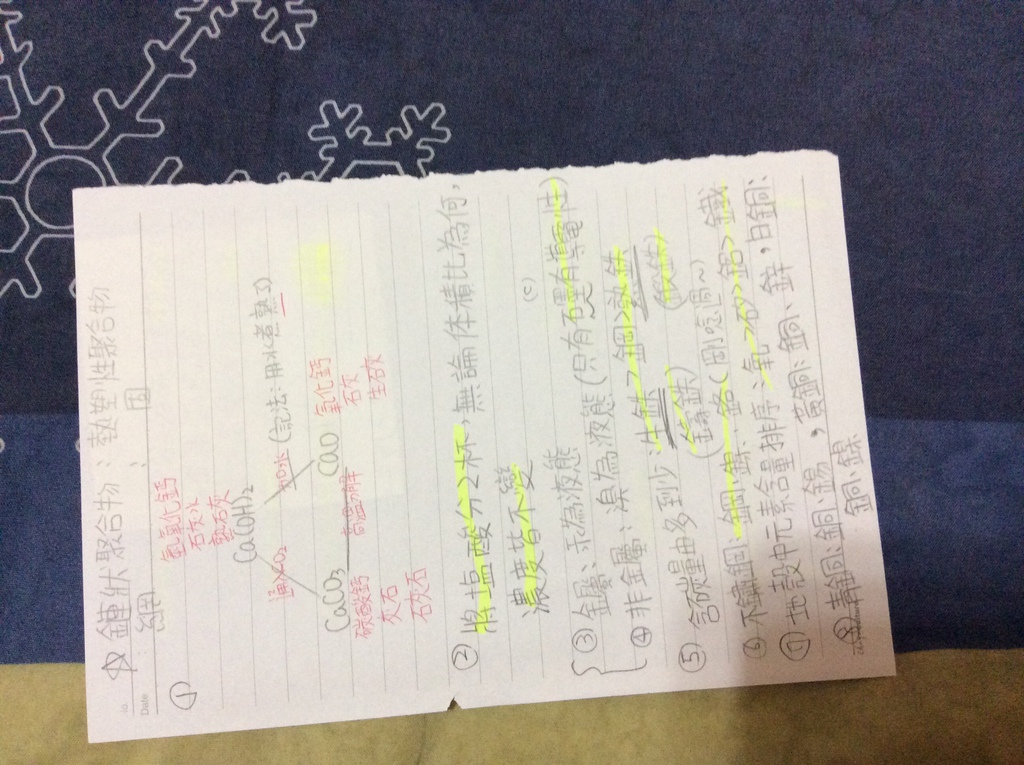 ☆ 鏈狀聚合物：熱塑性聚合物
No.
Date
網 ： 固
①
氫氧化鈣
石灰水
熟石灰
Ca(OH)₂
通入CO₂
加水(記法:用水煮熟了)
CaCO₃
高溫分解
CaO
碳酸鈣
灰石
石灰石
氧化鈣
石灰
生石灰
② 將塩酸分2杯,無論体積比為何,
濃度皆不變
(C)
③ 金屬:汞為液態
④ 非金屬:溴為液態(只有石墨有導電性)
⑤ 含碳量由多到少 生鐵>鋼>熟鐵
(鑄鐵) (鍛鐵)
⑥ 不鏽鋼:鋼、鎳、鉻(剛唸過~)
⑦ 地殼中元素含量排序:氧>矽>鋁>鐵
⑧ 青銅:銅、錫，黃銅:銅、鋅，白銅:
銅、鎳